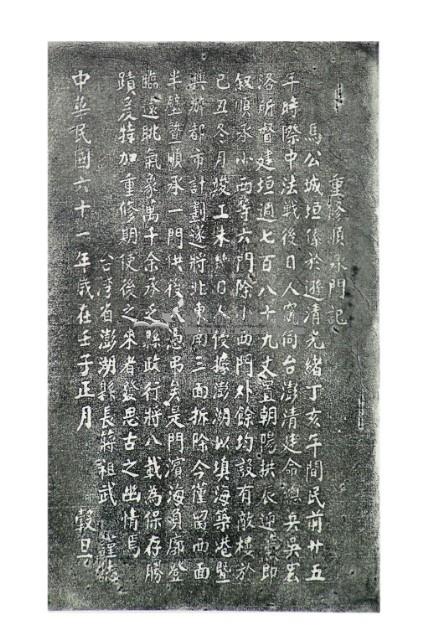 重修順承門記
馬公城垣係於遜清光緒丁亥年間民前廿五
年時際中法戰後日人窺伺台澎清廷命總兵吳宏
洛所督建垣週七百八十九丈置朝陽拱辰迎薰即
敍順承小西等六門除小西門外餘均設有敵樓於
己丑冬月竣工未幾日人侵據澎湖以填海築港暨
興辦都市計劃遂將北東南三面拆除今僅留西面
半壁暨順承一門供後人憑弔矣是門濱海負廓登
臨遠眺氣象萬千余承乏縣政行將八載為保存勝
蹟爰特加重修期使後之來者發思古之幽情焉
台灣省澎湖縣長蔣祖武 謹誌
中華民國六十一年歲在壬子正月 穀旦